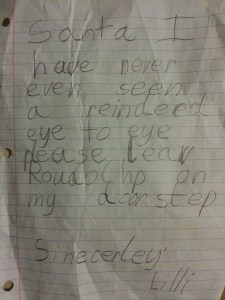 Santa I
have never
even seen
a reindeed
eye to eye
please leav
on
my doorstep
Sinecerley
Lilli